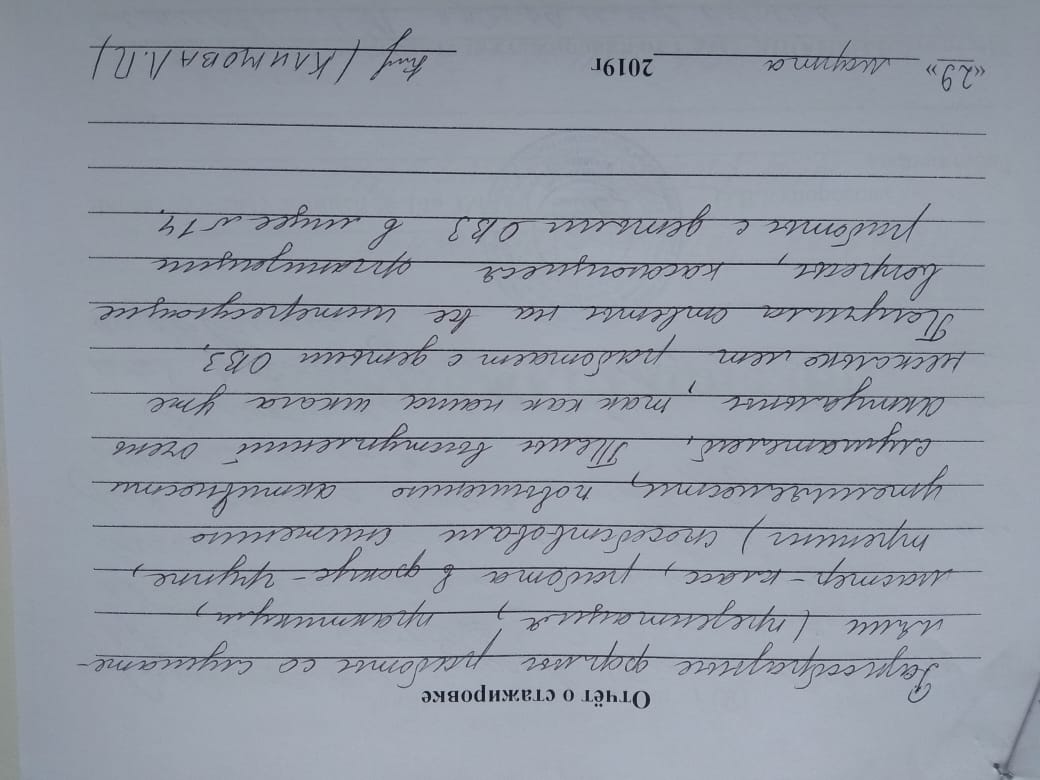 Отчёт о стажировке
Разнообразные формы работы со слушате-
лями (презентация, практикум,
мастер-класс, работа в фокус-группе,
тренинг) способствовали снижению
утомляемости, повышению активности
слушателей. Темы выступлений очень
актуальны, так как наша школа уже
несколько лет работает с детьми ОВЗ.
Получила ответы на все интересующие
вопросы, касающиеся организации
работы с детьми ОВЗ в лицее №14.
«29» марта 2019г (Климова Л.П)